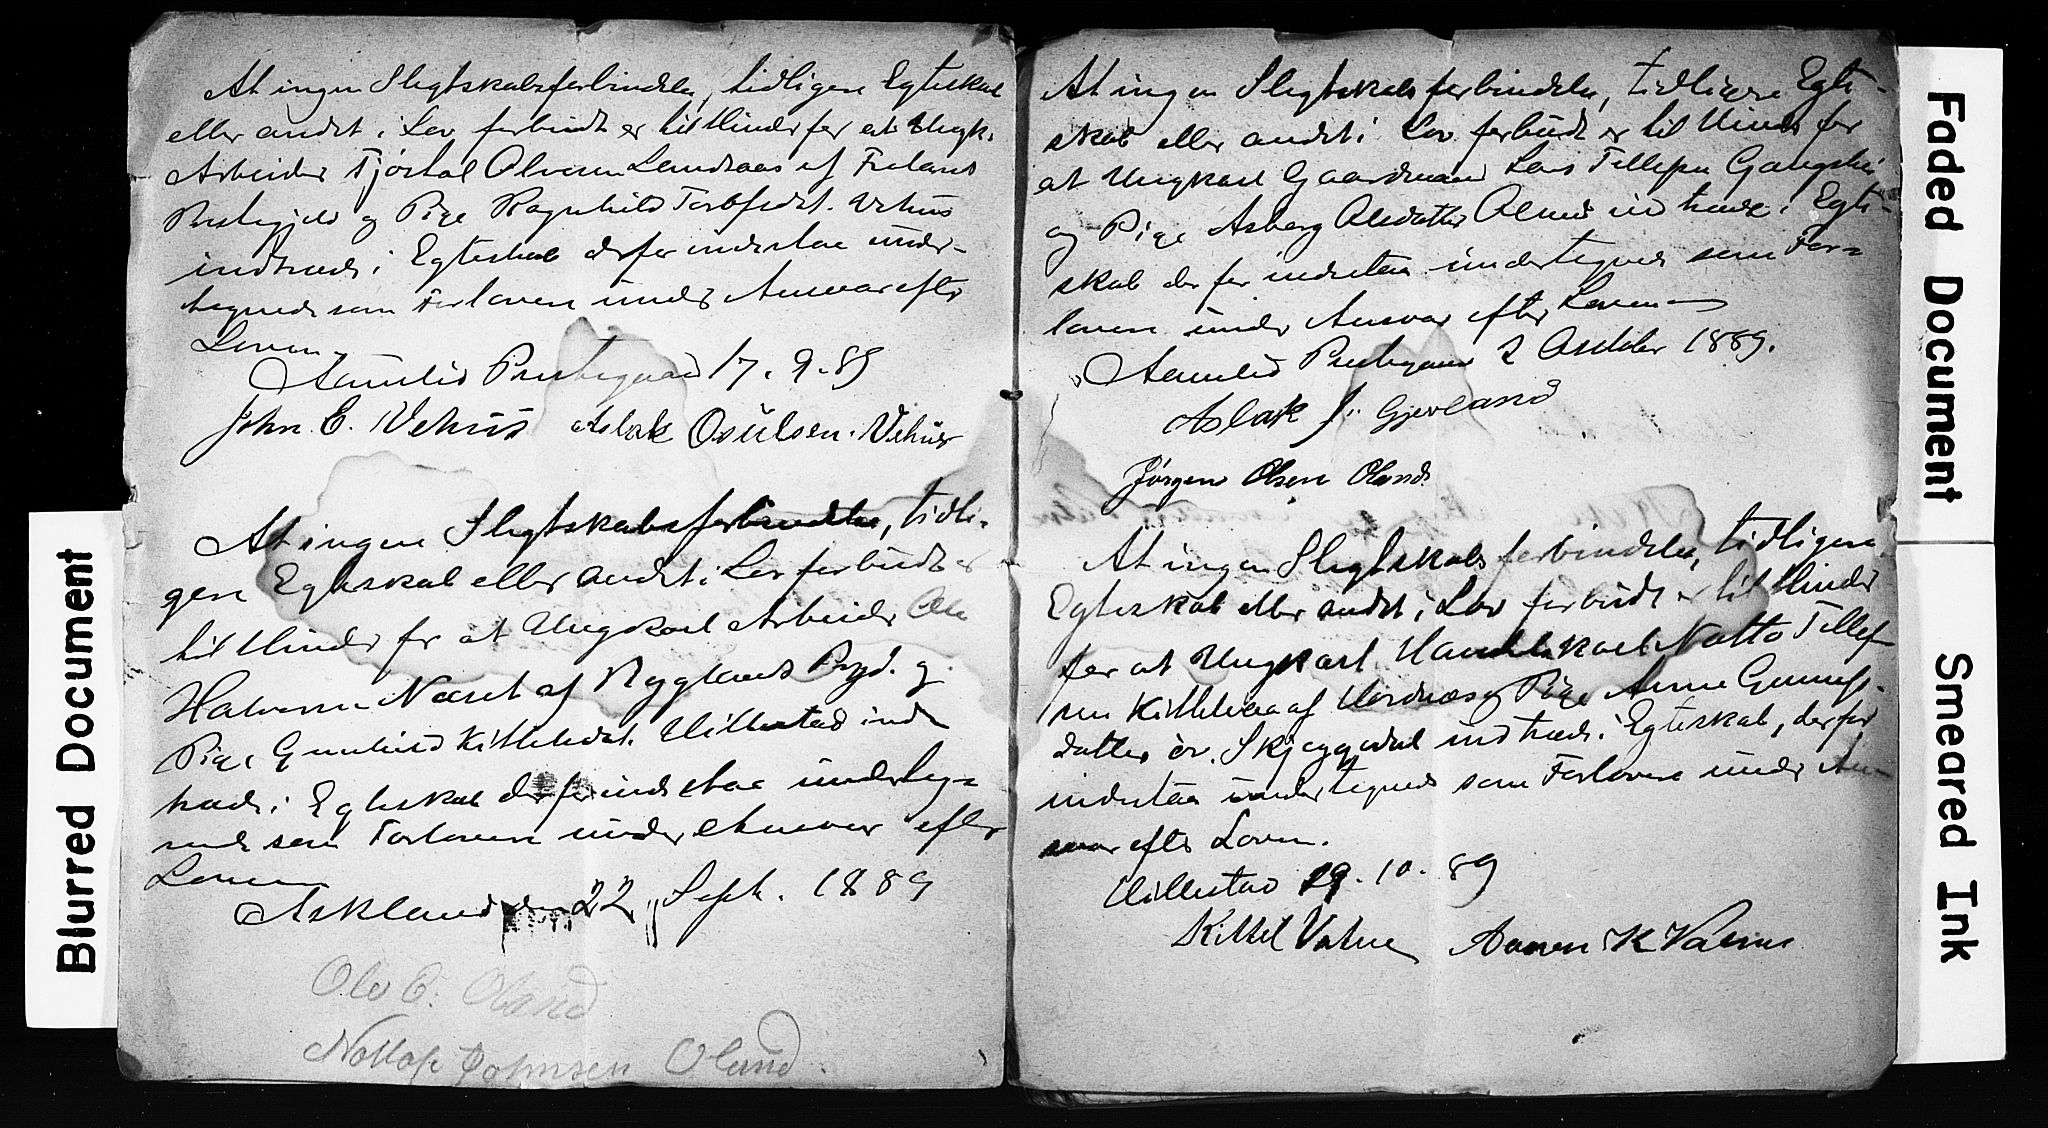 At ingen Slegtskabsforbindelse, tidligere Egteskab
eller andet i Lov forbudt er til Hinder for at Ungk.
Arbeider Tjøstal Olvsen Landsaas af Frolands
Prestegjeld og Pige Ragnhild Torbjødt. Vehus
indtræde i Egteskab derfor indestaa under-
tegnede som Forlovere under Ansvar efter
Loven.
Aamlid Prestegaard 17. 9. 89
John E. Vehus Aslak Osulsen. Vehus
At ingen Slegtskabsforbindelse, tidli-
gere Egteskab eller andet i Lov forbudt er
til Hinder for at Ungkarl Arbeider Ole
Halvorsen Næset af Nyglands Prgd. og
Pige Gunhild Kittelsdt. Hillestad ind
træde i Egteskab derfor indestaa underteg-
nede som Forlovere under Ansvar efter
Loven
Askland den 22 Sept. 1889
Ole E. Oland
Nottolf Johnsen Oland.
At ingen Slegtskabsforbindelse, tidligere Egte-
skab eller andet i Lov forbudt er til Hinder for
at Ungkarl Gaardmand Lars Tellefsen Gangshei
og Pige Asberg Olsdatter Oland indtræde i Egte-
skab derfor indestaa undertegnede som For-
lovere under Ansvar efter Loven
Aamlid Prestegaard 2 October 1889.
Aslak J. Gjevland
Jørgen Olsen Oland.
At ingen Slegtskabsforbindelse, tidligere
Egteskab eller andet i Lov forbudt er til Hinder
for at Ungkarl Handelskarl Notto Tellef-
sen Kittelsaa af Hordnæs og Pige Anne Gunufs-
datter øv. Skjeggedal indtræde i Egteskab, derfor
indestaa undertegnede som Forlovere under An-
svar efter Loven.
Hillestad 19. 10. 89
Kittel Vatne Aanen K Vatne
Blurred Document
Faded Document
Smeared Ink